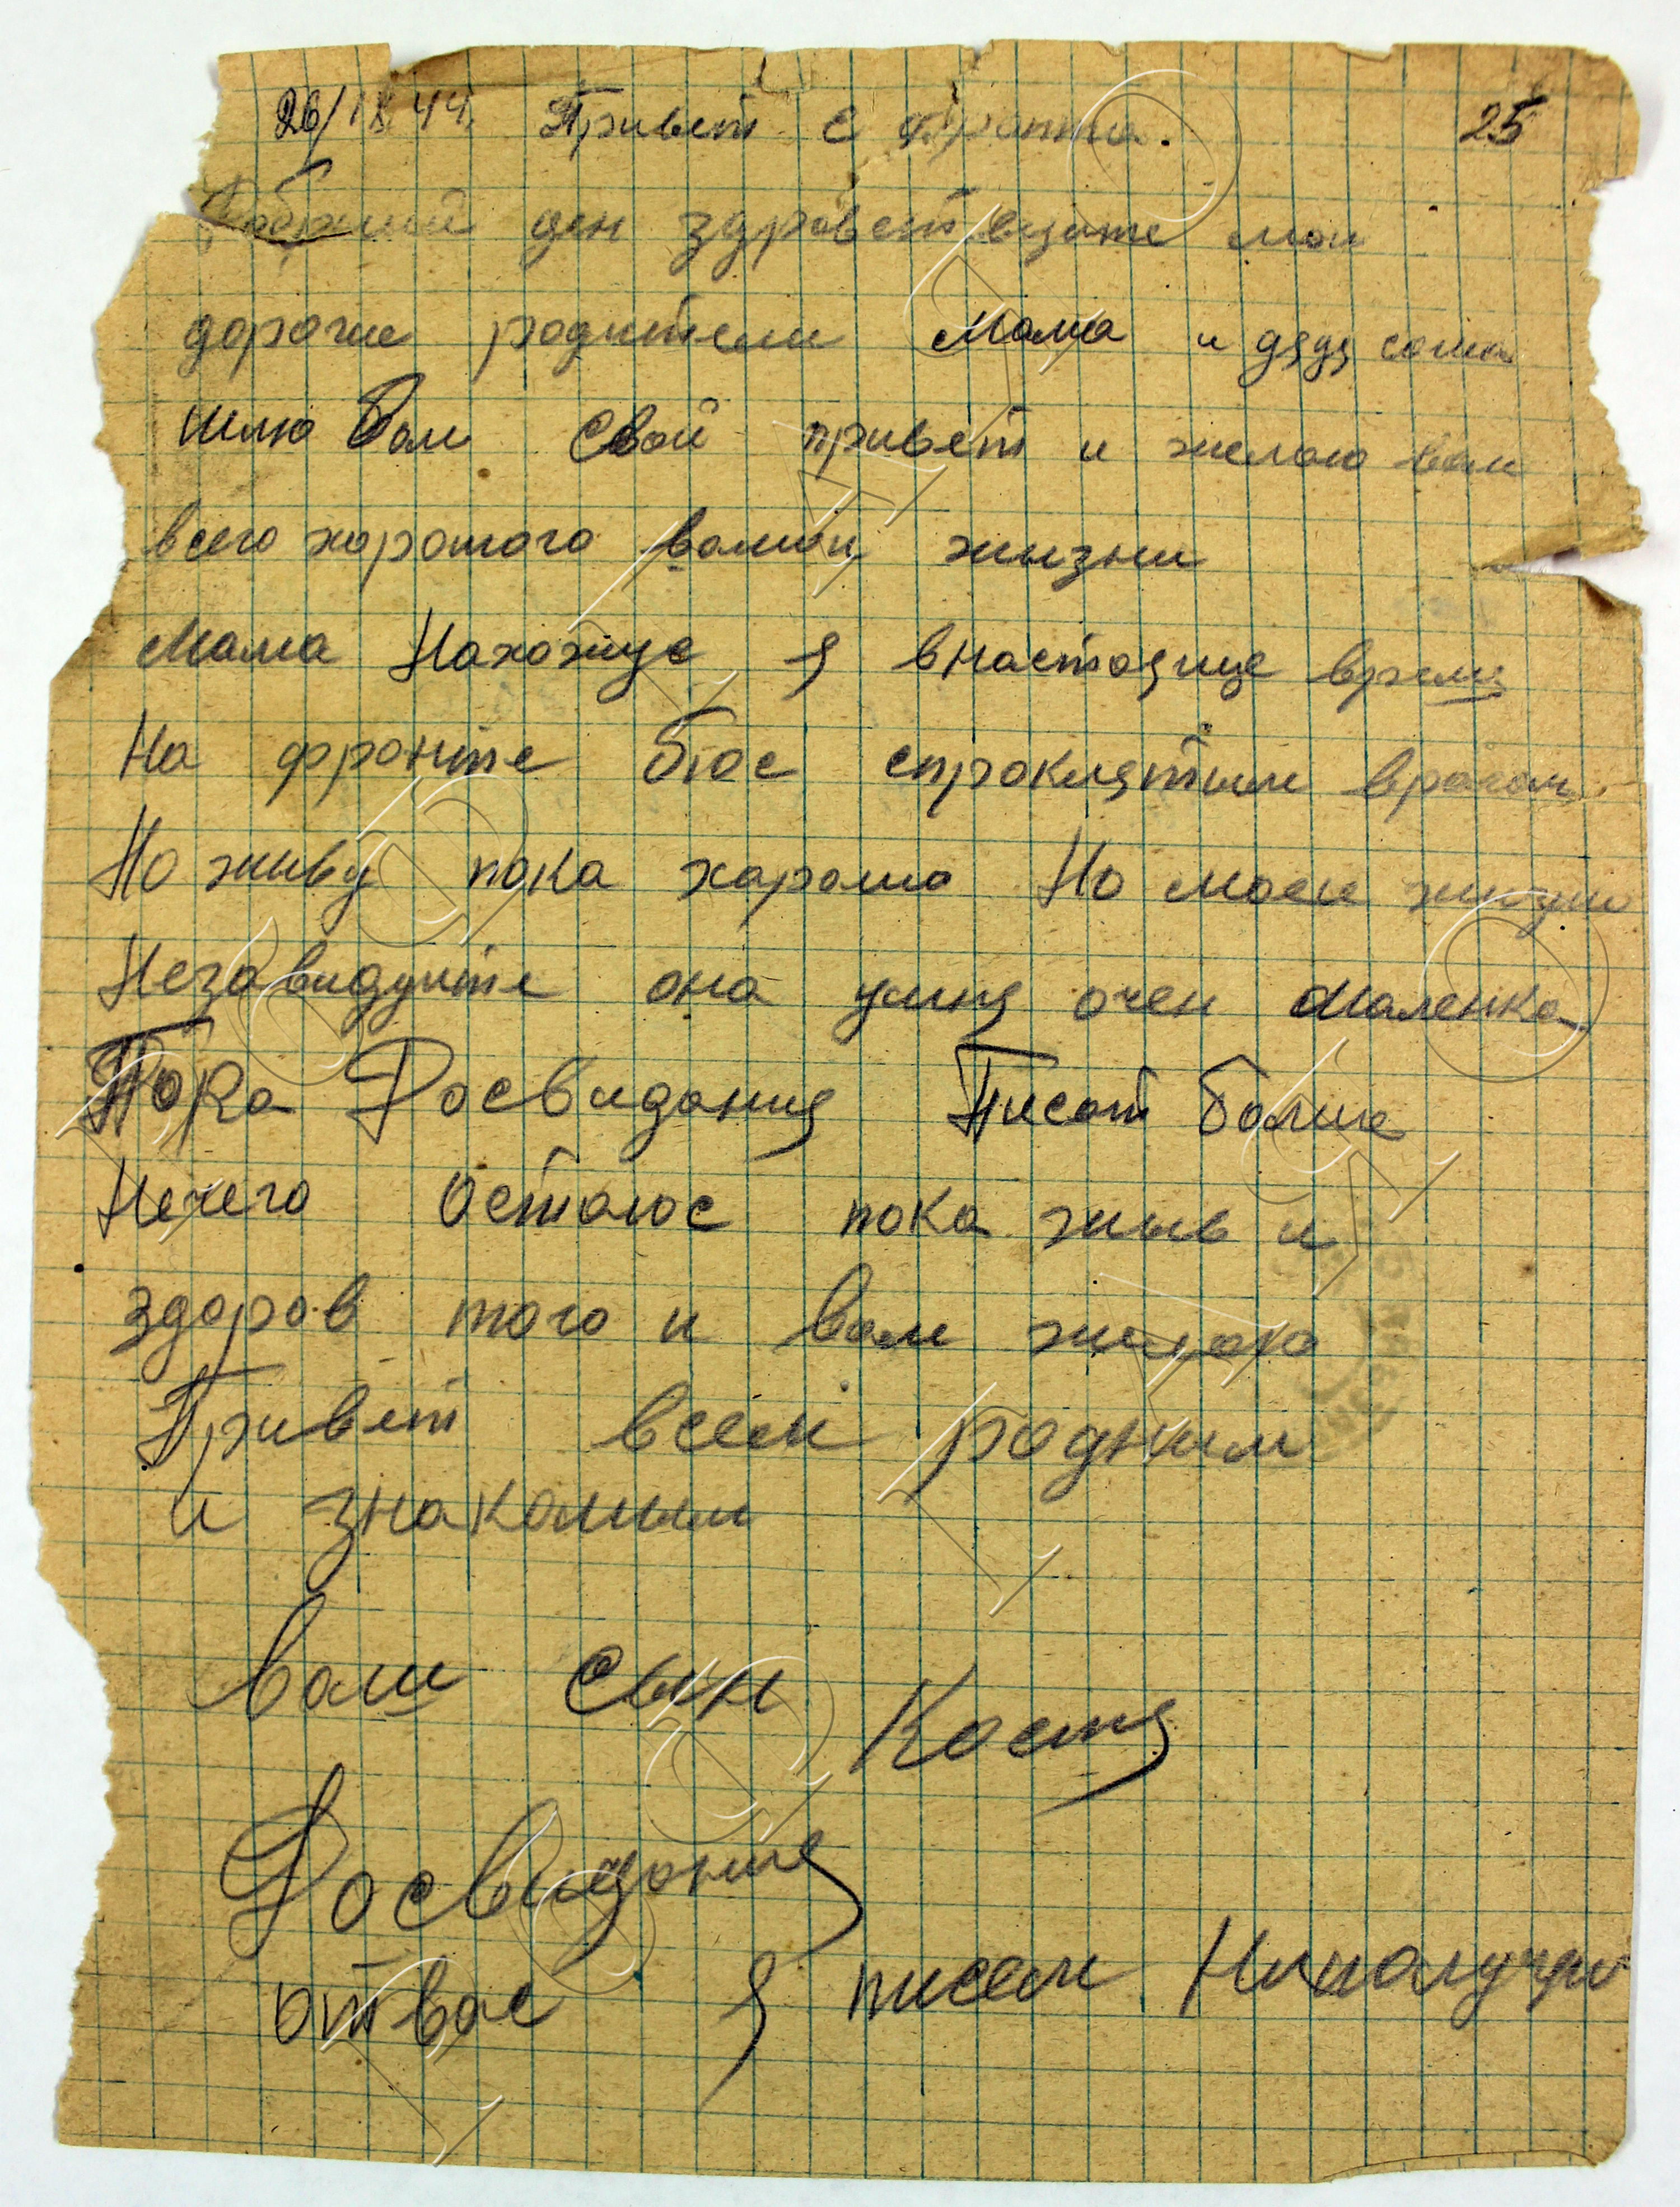 26/IX 44. Привет с фронта. 25
Добрый ден здровствуите мои
дорогие родители Мама и дядя сома
шлю Вам Свой привет и желаю вам
всего хорошого вашои жызни
Мама Нахожус я внастоящие время
На фронте бюс спроклятым врагом
Но живу пока харошо Но моеи жизни
Незавидуите она уминя очен Маленка
Пока Досвидания Писат болше
Нечего Остаюс пока жыв и
здоров того и вам жилаю
Привет всем родным
и знакомым
Ваш сын Костя
Досвидания
отвас я писем Ниполучаю